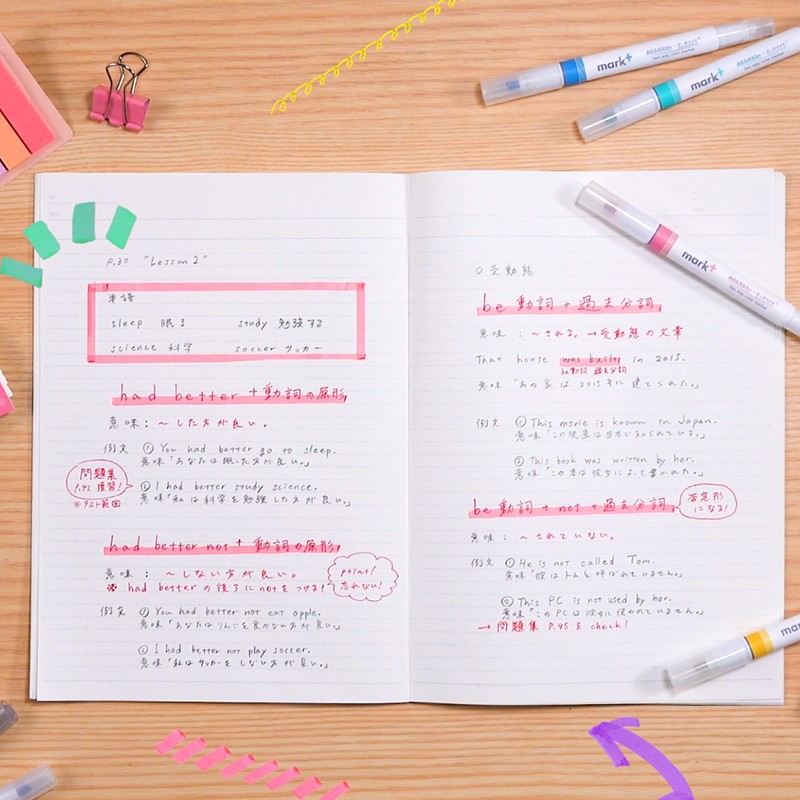 mark+
mark+
mark+
mark+
P.30 "Lesson 2"
単語
sleep 眠る study 勉強する
science 科学 soccer サッカー
had better + 動詞の原形
意味：～した方が良い。
例文 ① You had better go to sleep.
意味「あなたは眠った方が良い。」
② I had better study science.
意味「私は科学を勉強した方が良い。」
問題集
P.42 復習!
※テスト範囲
had better not + 動詞の原形
意味：～しない方が良い。
※ had better の後ろにnotをつける!
point!
忘れない!
例文 ① You had better not eat apple.
意味「あなたはりんごを食べない方が良い。」
② I had better not play soccer.
意味「私はサッカーをしない方が良い。」
○ 受動態
be 動詞 + 過去分詞
意味：～される。→受動態の文章
That house was built in 2015.
be動詞 過去分詞
意味「あの家は2015年に建てられた。」
例文 ① This movie is known in Japan.
意味「この映画は日本で知られている。」
② This book was written by her.
意味「この本は彼女によって書かれた。」
be 動詞 + not + 過去分詞
否定形
になる!
意味：～されていない。
例文 ① He is not called Tom.
意味「彼はトムと呼ばれていません。」
② This PC is not used by her.
意味「このPCは彼女に使われていません。」
→ 問題集 P.45 を check!